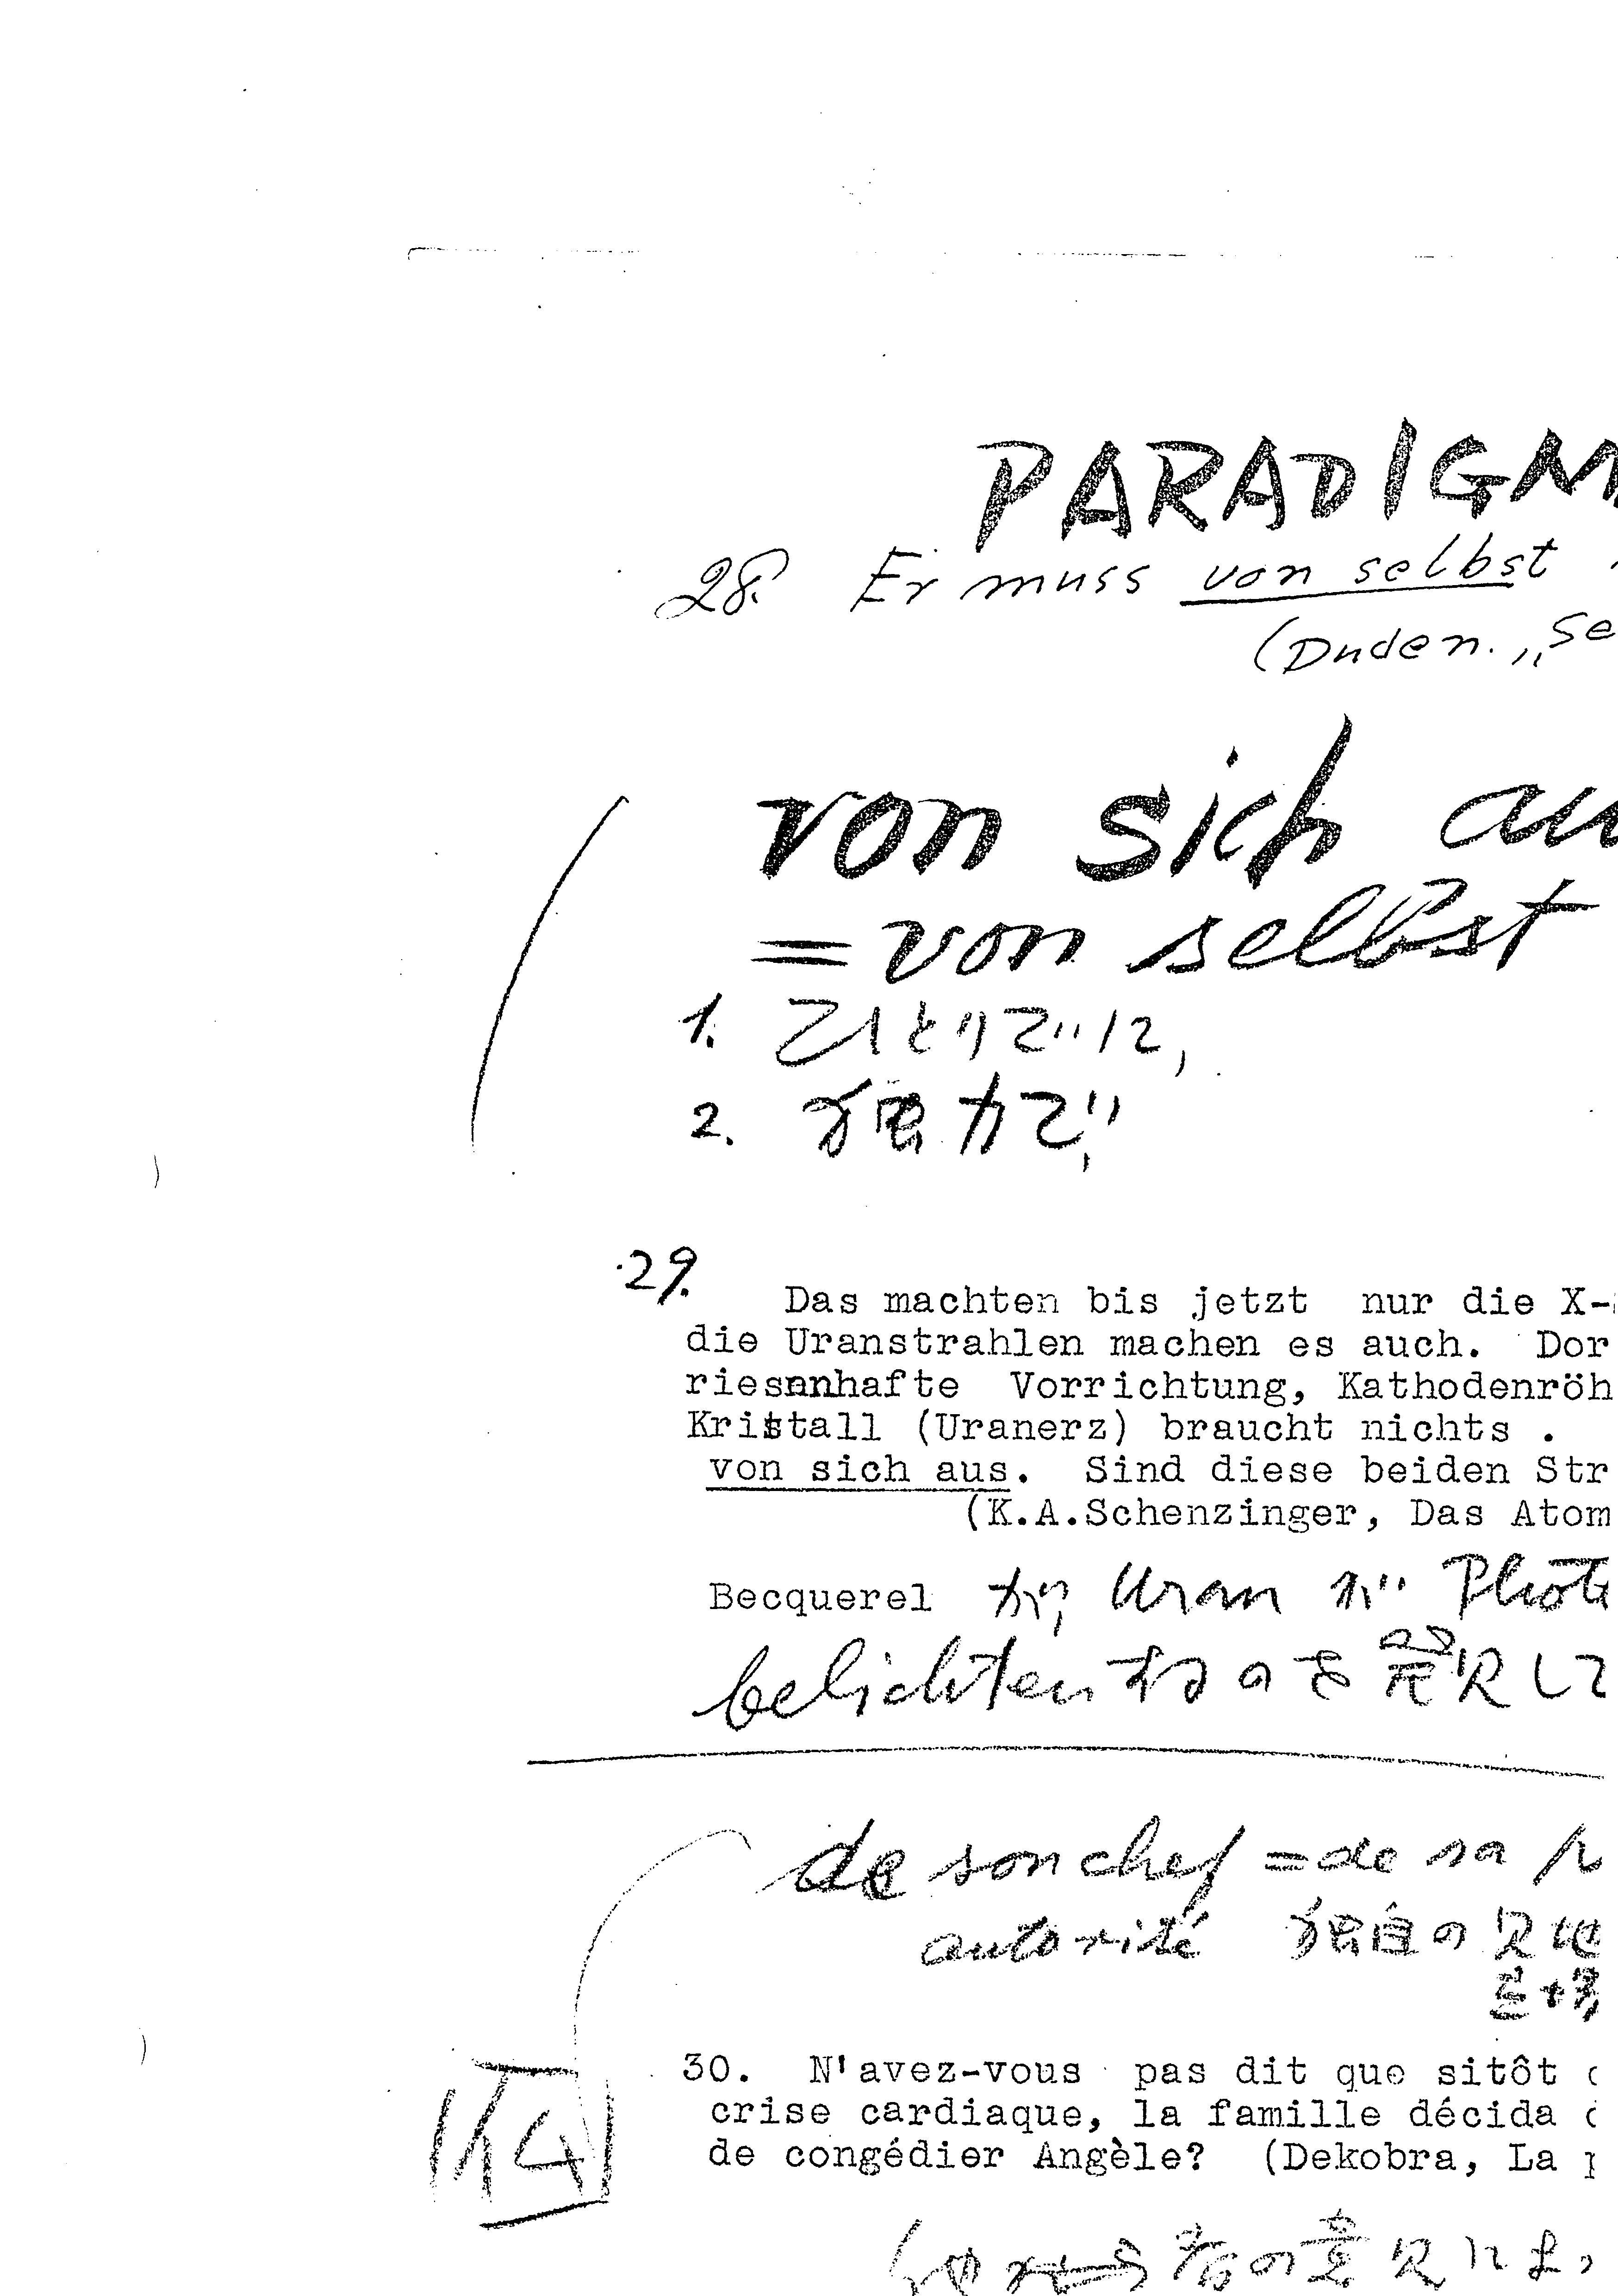 PARADIGM
28. Er muss von selbst
(Duden. „Se
von sich au
= von selbst
1. ひとりでに,
2. 独力で,
29.
Das machten bis jetzt nur die X-
die Uranstrahlen machen es auch. Dor
riesnnhafte Vorrichtung, Kathodenröh
Kristall (Uranerz) braucht nichts .
von sich aus. Sind diese beiden Str
(K.A.Schenzinger, Das Atom
Becquerel が, Uran が Phot
belichten するのを発見して
de son chef = de sa
autorité 独自の見地
30. N'avez-vous pas dit que sitôt
crise cardiaque, la famille décida
de congédier Angèle? (Dekobra, La
の意見によ